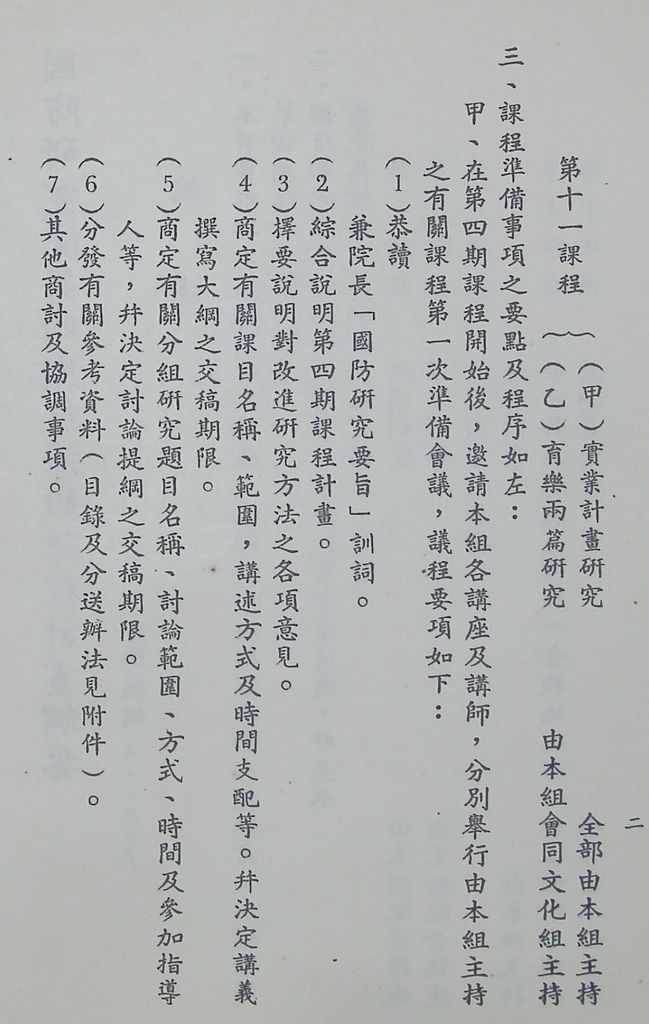 二
第十一課程
（甲）實業計畫研究　全部由本組主持
（乙）育樂兩篇研究　由本組會同文化組主持
三、課程準備事項之要點及程序如左：
甲、在第四期課程開始後，邀請本組各講座及講師，分別舉行由本組主持
之有關課程第一次準備會議，議程要項如下：
（1）恭讀
兼院長「國防研究要旨」訓詞。
（2）綜合說明第四期課程計畫。
（3）擇要說明對改進研究方法之各項意見。
（4）商定有關課目名稱、範圍，講述方式及時間支配等。幷決定講義
撰寫大綱之交稿期限。
（5）商定有關分組研究題目名稱、討論範圍、方式、時間及參加指導
人等，幷決定討論提綱之交稿期限。
（6）分發有關參考資料（目錄及分送辦法見附件）。
（7）其他商討及協調事項。